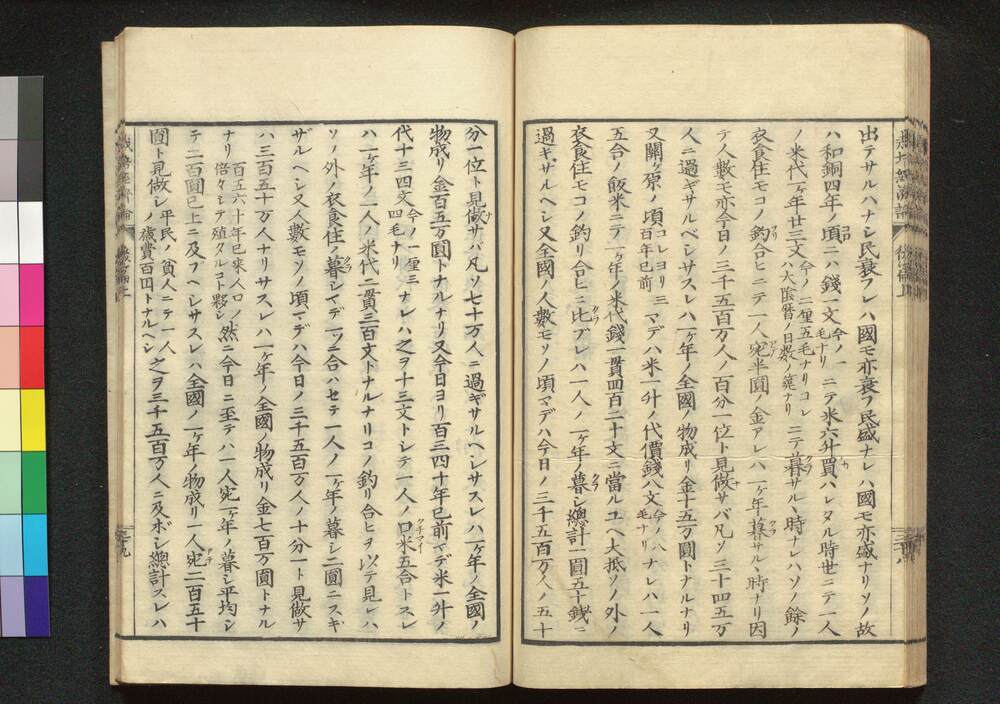 出テサルハナシ民衰フレハ國モ亦衰フ民盛ナレハ國モ亦盛ナリソノ故
ハ和銅四年ノ頃ニハ錢一文今ノ一毛ナリニテ米六升買ハレタル時世ニテ一人
ノ米代一ヶ年廿三文今ノ二厘五毛ナリコレハ大陰暦ノ日数ノ算ナリニテ暮サル、時ナレハソノ餘ノ
衣食住モコノ釣合ヒニテ一人宛半圓ノ金アレハ一ヶ年暮サル、時ナリ因
テ人數モ亦今日ノ三千五百万人ノ百分一位ト見做サバ凡ソ三十四五万
人ニ過ギサルベシサスレハ一ヶ年ノ全國ノ物成リ金十五万圓トナルナリ
又關ヶ原ノ頃コレヨリ三百年已前マデハ米一升ノ代價錢八文今ノ八毛ナリナレハ一人
五合ノ飯米ニテ一ヶ年ノ米代錢一貫四百二十文ニ當ルユヘ大抵ソノ外ノ
衣食住モコノ釣リ合ヒニ比ブレハ一人ノ一ヶ年ノ暮シ總計一圓五十錢ニ
過ギザルヘシ又全國ノ人數モソノ頃マデハ今日ノ三千五百万人ノ五十
分一位ト見做サバ凡ソ七十万人ニ過ギサルヘシサスレハ一ヶ年ノ全國ノ
物成リ金百五万圓トナルナリ又今日ヨリ百三四十年已前マデ米一升ノ
代十三四文今ノ一厘三四毛ナリナレハ之ヲ十三文トシテ一人ノ口米五合トスレ
ハ一ヶ年ノ一人ノ米代二貫三百文トナルナリコノ釣リ合ヒヲ以テ見レハ
ソノ外ノ衣食住ノ暮シマデ一ツニ合ハセテ一人ノ一ヶ年ノ暮シ二圓ニスギ
ザルヘシ又人數モソノ頃マデハ今日ノ三千五百万人ノ十分一ト見做サ
ハ三百五十万人ナリサスレハ一ヶ年ノ全國ノ物成リ金七百万圓トナル
ナリ百五六十年已来人口ノ倍々シテ殖タルコト夥シ然ニ今日ニ至テハ一人宛一ヶ年ノ暮シ平均シ
テ二百圓已上ニ及ブヘシサスレハ全國ノ一ヶ年ノ物成リ一人宛二百五十
圓ト見做シ平民ノ貧人ニテ一人ノ穐費百円トナルヘシ之ヲ三千五百万人ニ及ボシ總計スレハ